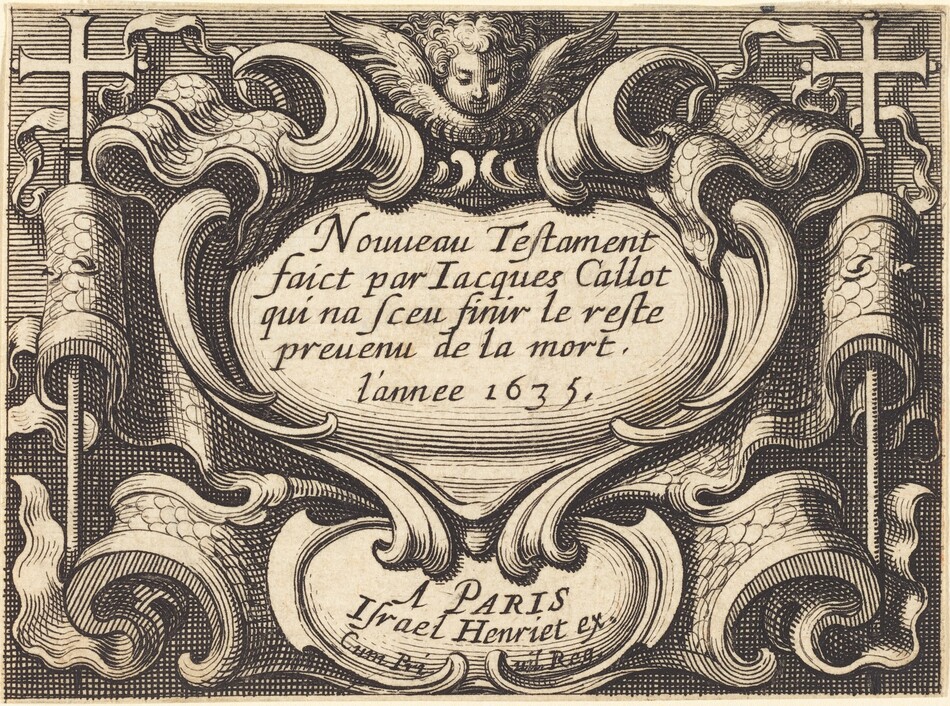 Nouueau Teſtament
faict par Iacques Callot
qui na ſceu finir le reſte
preuenu de la mort.
l'annee 1635.
A PARIS
Iſrael Henriet ex.
Cum Pri uil Reg